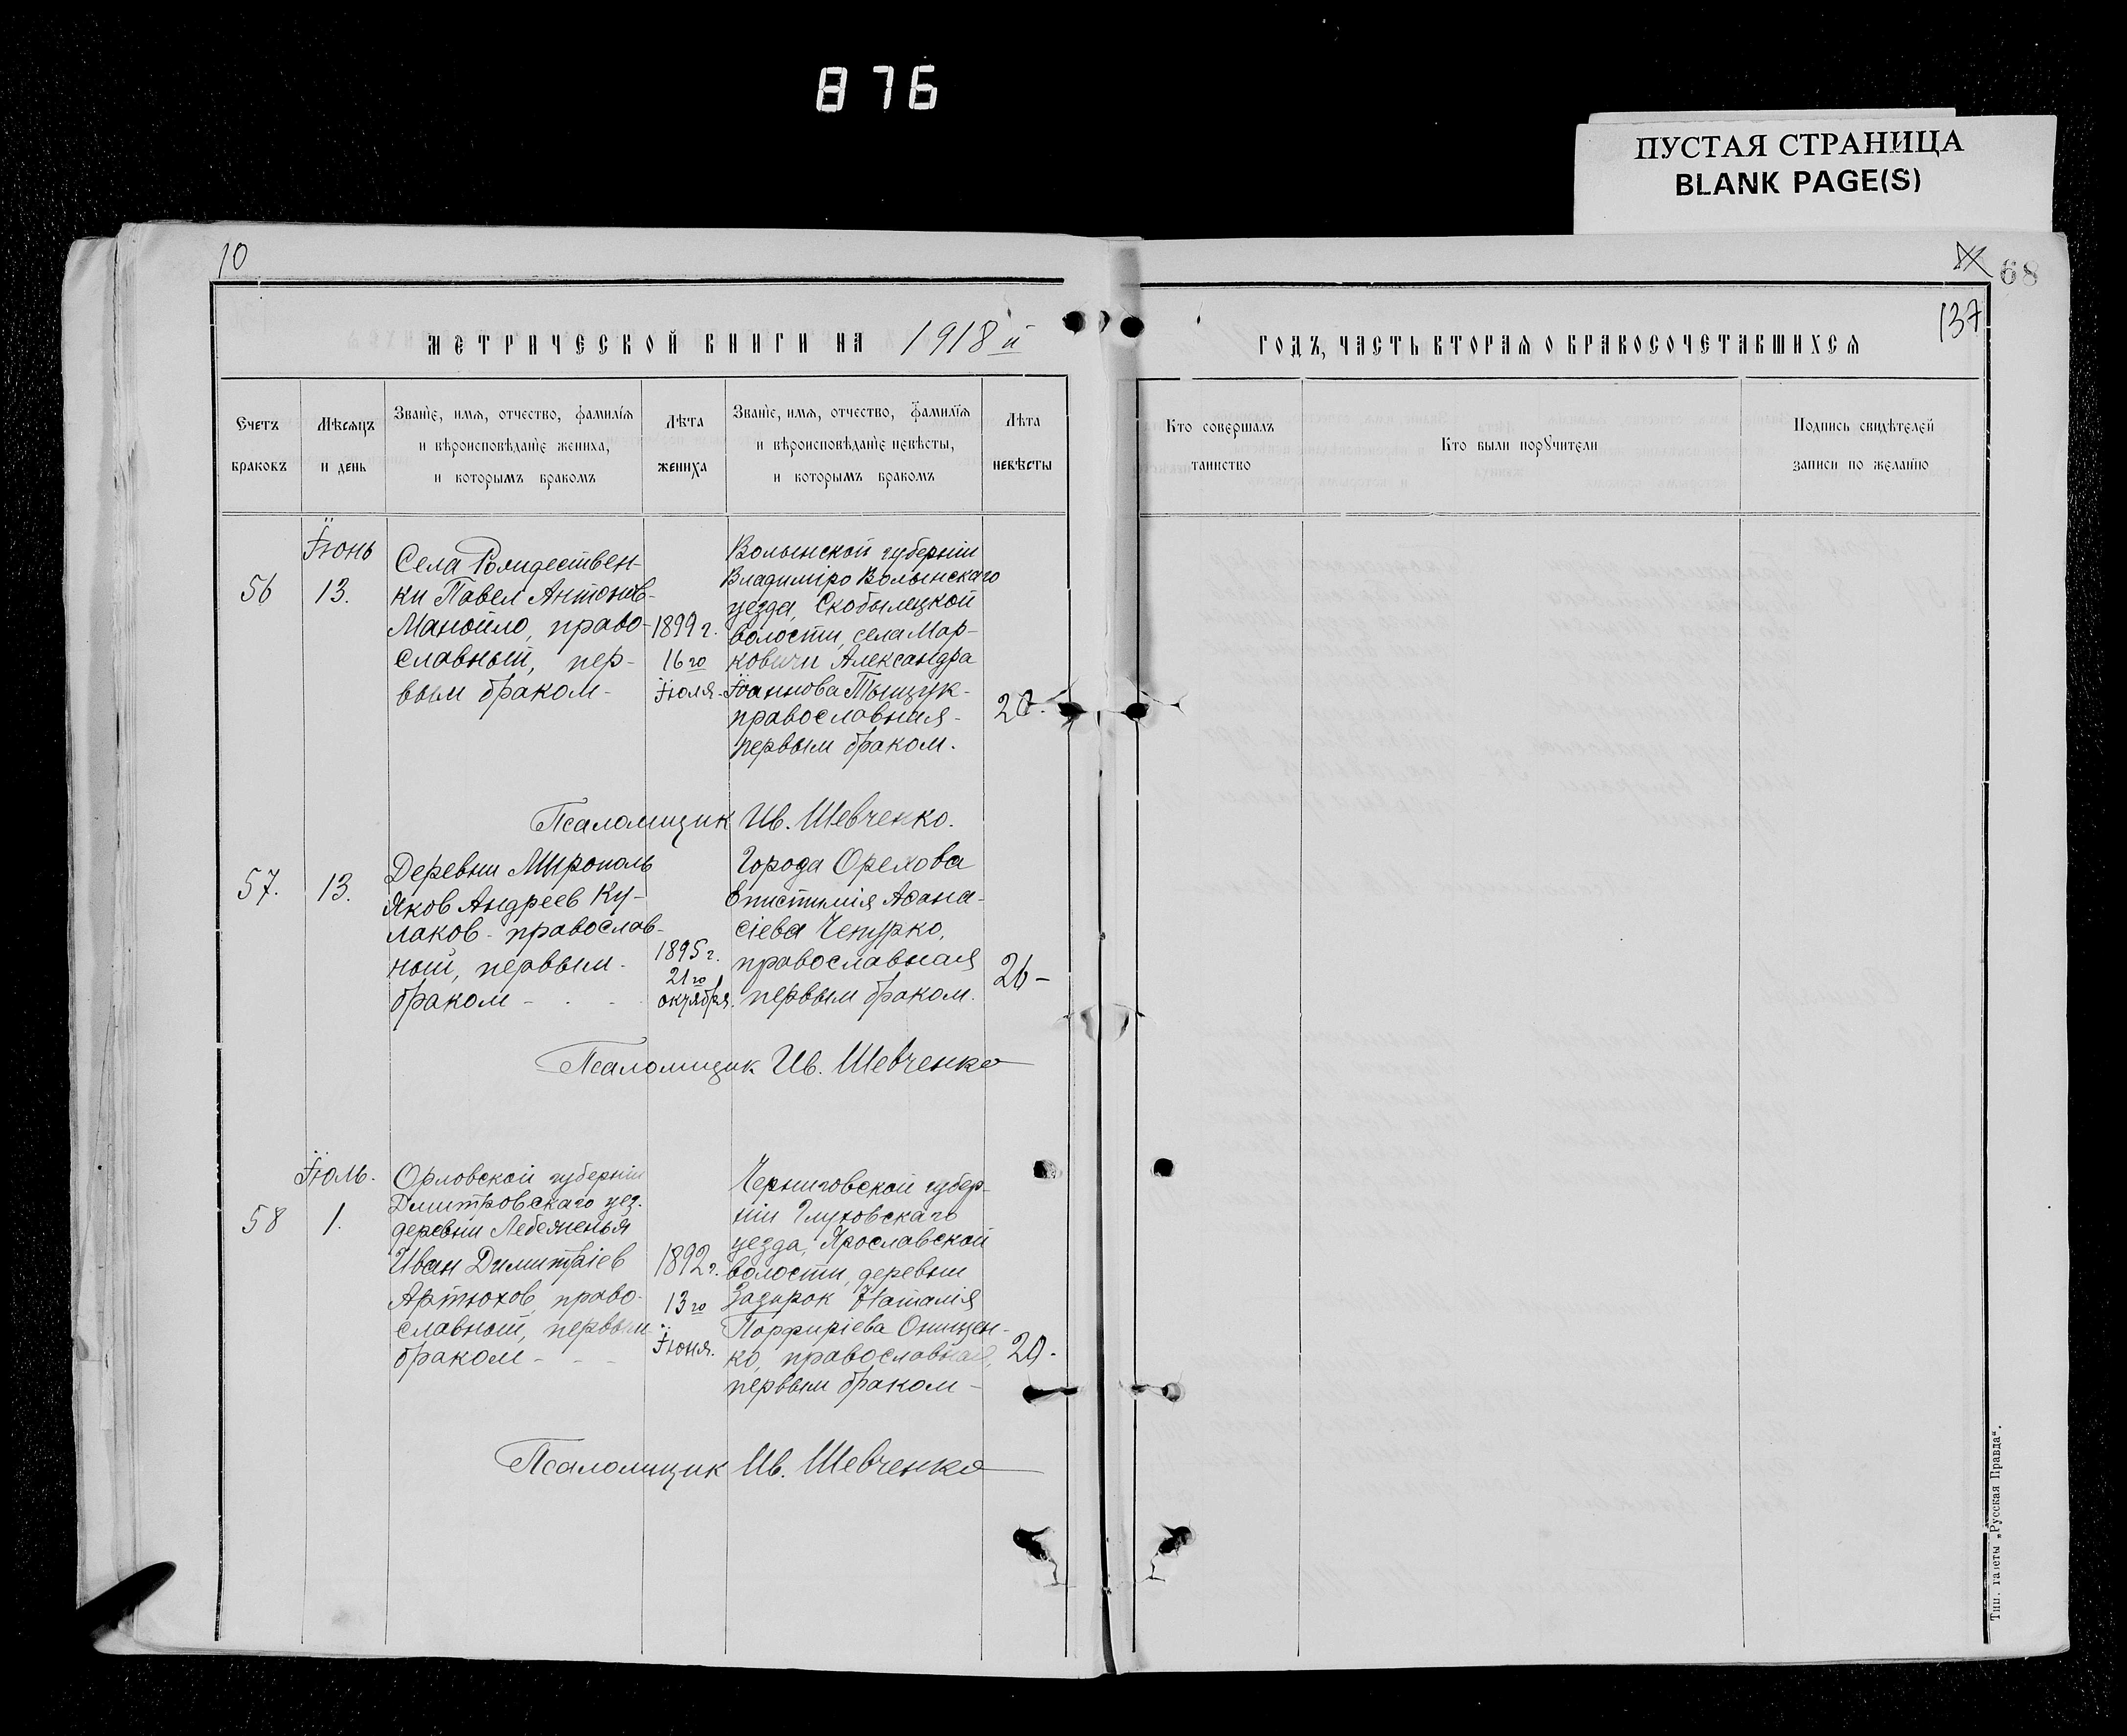 876
ПУСТАЯ СТРАНИЦА
BLANK PAGE(S)
10
68
137
МЕТРИЧЕСКОЙ КНИГИ НА 1918 й
ГОДЪ, ЧАСТЬ ВТОРАЯ О БРАКОСОЧЕТАВШИХСЯ
Счетъ
браковъ
Мѣсяцъ
и день
Званіе, имя, отчество, фамилія
и вѣроисповѣданіе жениха,
и которымъ бракомъ
Лѣта
жениха
Званіе, имя, отчество, фамилія
и вѣроисповѣданіе невѣсты,
и которымъ бракомъ
Лѣта
невѣсты
Кто совершалъ
таинство
Кто были поручители
Подпись свидѣтелей
записи по желанію
56
Їюнь
13.
Села Рождествен-
ки Павел Антонов-
Манойло, право-
славный, пер-
вым браком-
1899 г.
16го
Їюля-
Волынской губерніи
Владиміро Волынскаго
уезда, Скобылецкой
волости, села Мар-
ковичи Александра
Їоаннова Тыщук-
православная-
первым браком.
20.
Псаломщик Ив. Шевченко.
57.
13.
Деревни Мирополь
Яков Андреев Ку-
лаков- православ-
ный, первым-
браком -
1895 г.
21го
октября.
Города Орехова
Епистимія Афана-
сіева Чепурко,
православная
первым браком.
26-
Псаломщик Ив. Шевченко
58
Їюль.
1.
Орловской губерніи
Дмитровскаго уез.
деревни
Иван Димитріев
Артюхов, право-
славный, первым
браком - - -
1892 г.
13го
Їюня.
Черниговской губер-
ніи Глуховскаго
уезда, Ярославской
волости, деревни
Задырок Наталія
Порфиріева Онищен-
ко, православная,
первым браком-
20.
Псаломщик Ив. Шевченко
Тип. газеты „Русская Правда“.